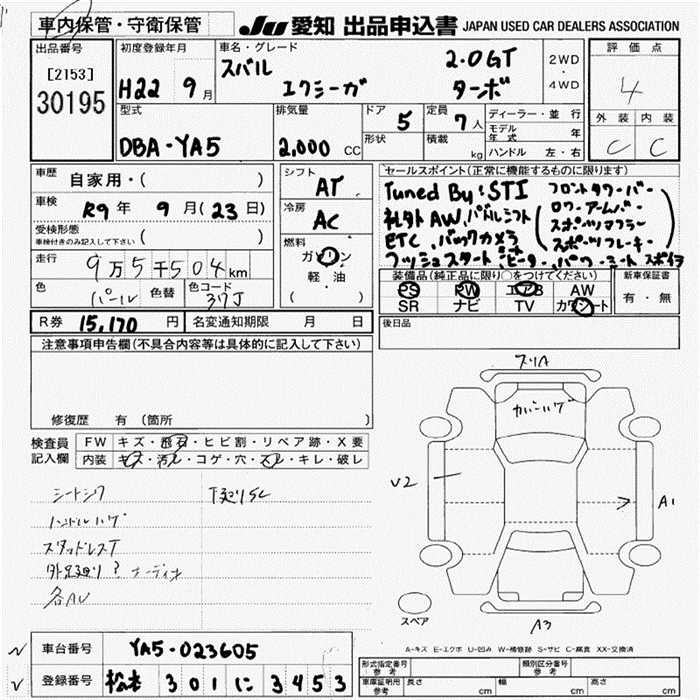 車内保管・守衛保管
JU 愛知 出品申込書 JAPAN USED CAR DEALERS ASSOCIATION
出品番号
[2153]
30195
初度登録年月
H22 9月
車名・グレード
スバル エクシーガ
2.0GT ターボ
2WD
・
4WD
評価点
4
外装 内装
C C
型式
DBA-YA5
排気量
2,000 CC
ドア 5
形状
定員 7人
積載 kg
ディーラー・並行
モデル年式 年
ハンドル 左・右
車歴 自家用・( )
車検 R9年 9月(23日)
受検形態
車検付きのみ記入して下さい ( )
走行 9万5千504km
色 パール 色替 色コード 37J
シフト AT
冷房 AC
燃料
ガソリン
軽・油
( )
セールスポイント(正常に機能するものに限ります)
Tuned By STI
社外AW パドルシフト
ETC バックカメラ
プッシュスタート
フロントタワーバー
ロワーアームバー
スポーツマフラー
装備品(純正品に限り○をつけてください)
PS PW エアB AW
SR ナビ TV カワシート
新車保証書
有・無
後日品
R券 15,170円 名変通知期限 月 日
注意事項申告欄(不具合内容等は具体的に記入して下さい)
修復歴 有 (箇所 )
検査員記入欄
FW キズ・飛石・ヒビ割・リペア跡・X要
内装 キズ・汚れ・コゲ・穴・スレ・キレ・破レ
シートシワ
ハンドルハゲ
スタッドレスT
下廻りSC
各AU
カバーハゲ
U2
A1
A3
スペア
A-キズ E-エクボ U-凹み W-補修跡 S-サビ C-腐食 XX-交換済
車台番号 YA5-023605
登録番号 松本 301 に 3453
形式指定番号 参考
類別区分番号 参考
車庫証明用 参考 長さ cm 幅 cm 高さ cm